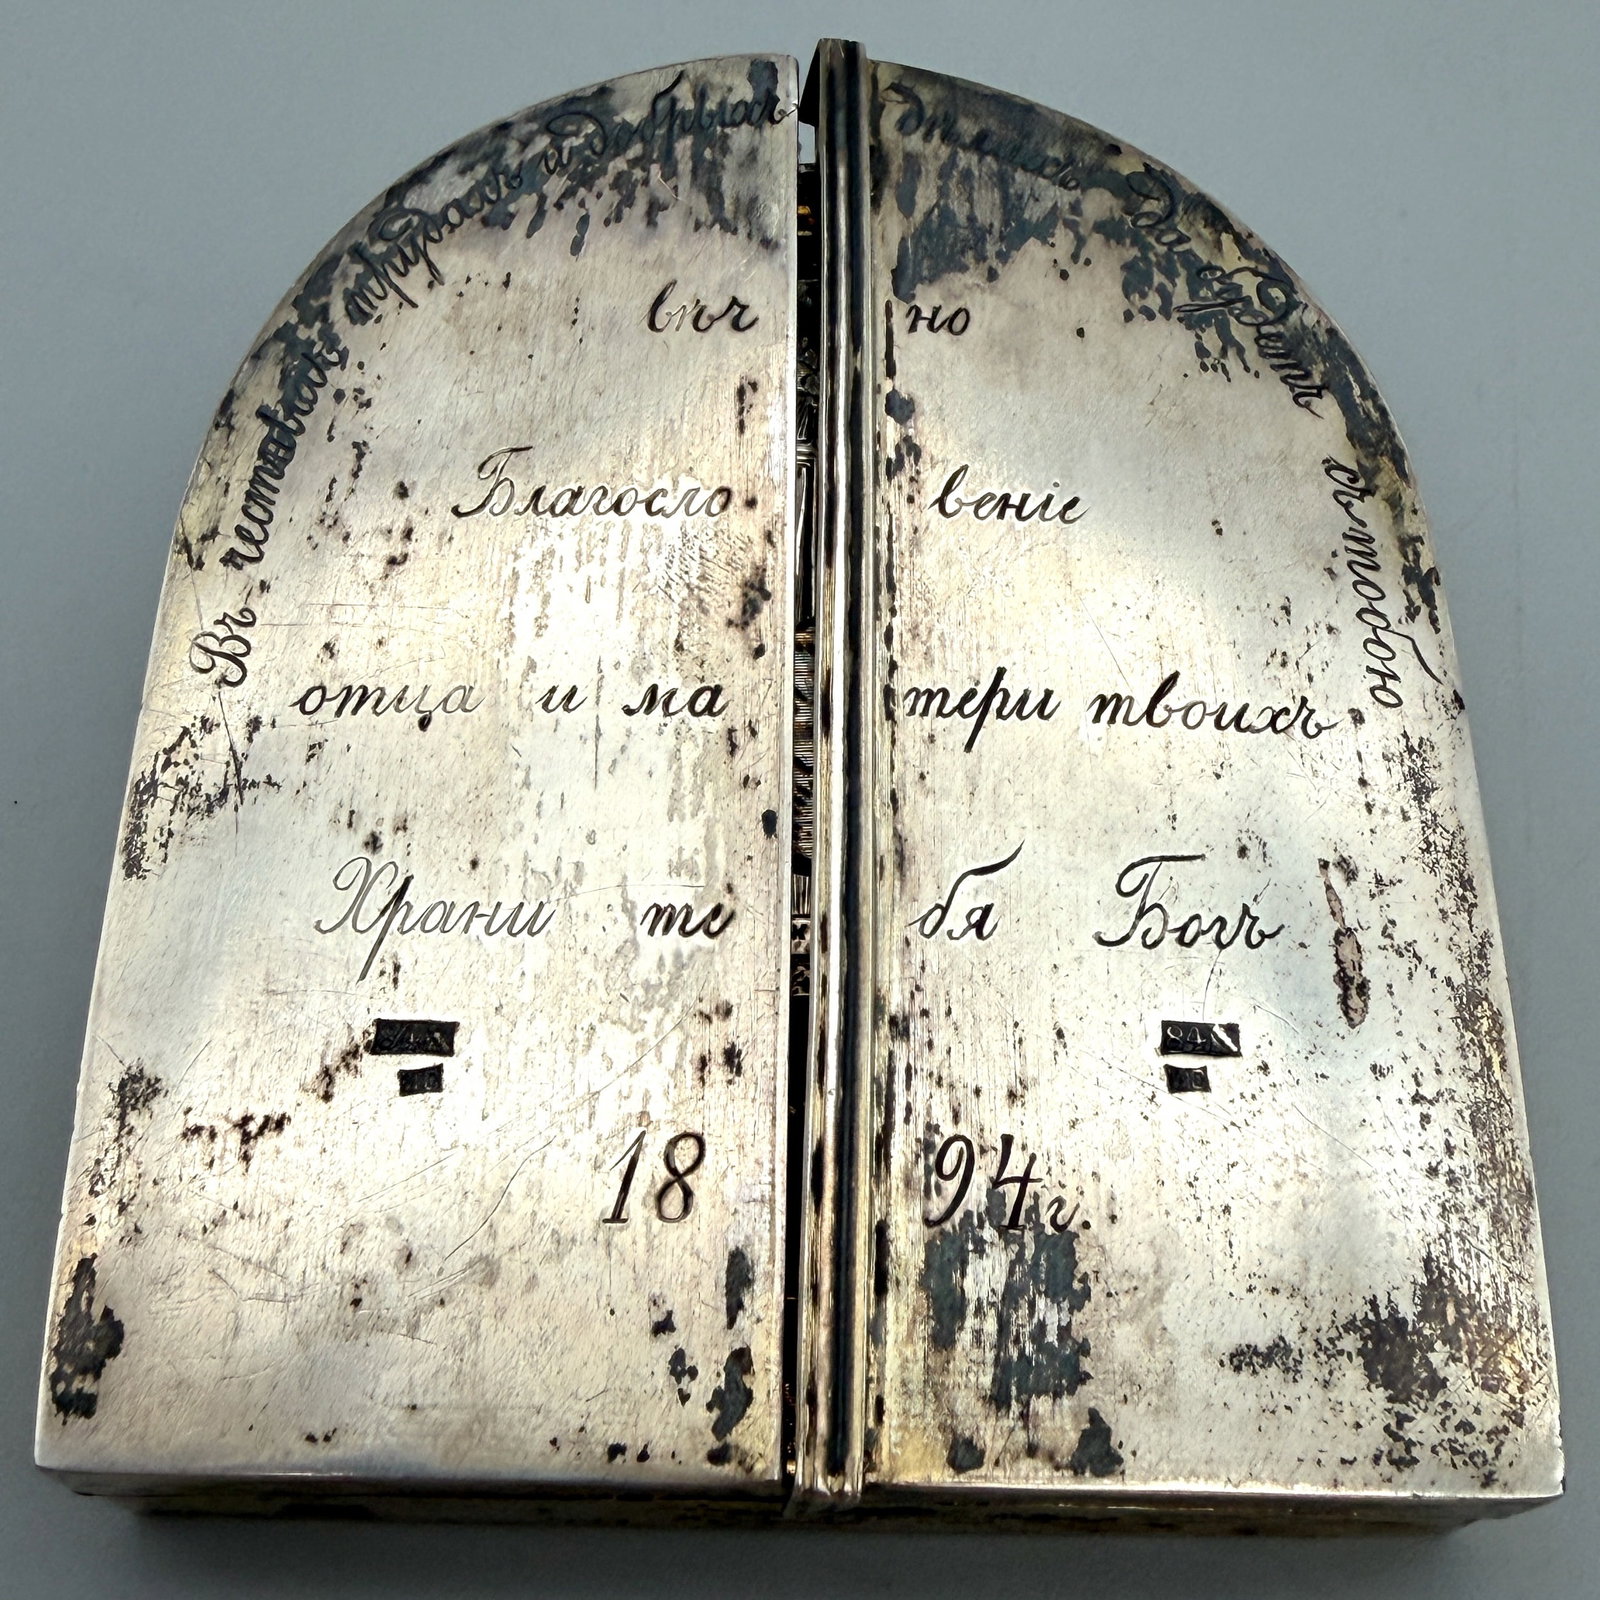 Въ честныхъ трудахъ и добрыхъ дѣлахъ да будетъ съ тобою
вѣчно
Благословеніе
отца и матери твоихъ
Храни тебя Богъ
84 84
1894 г.